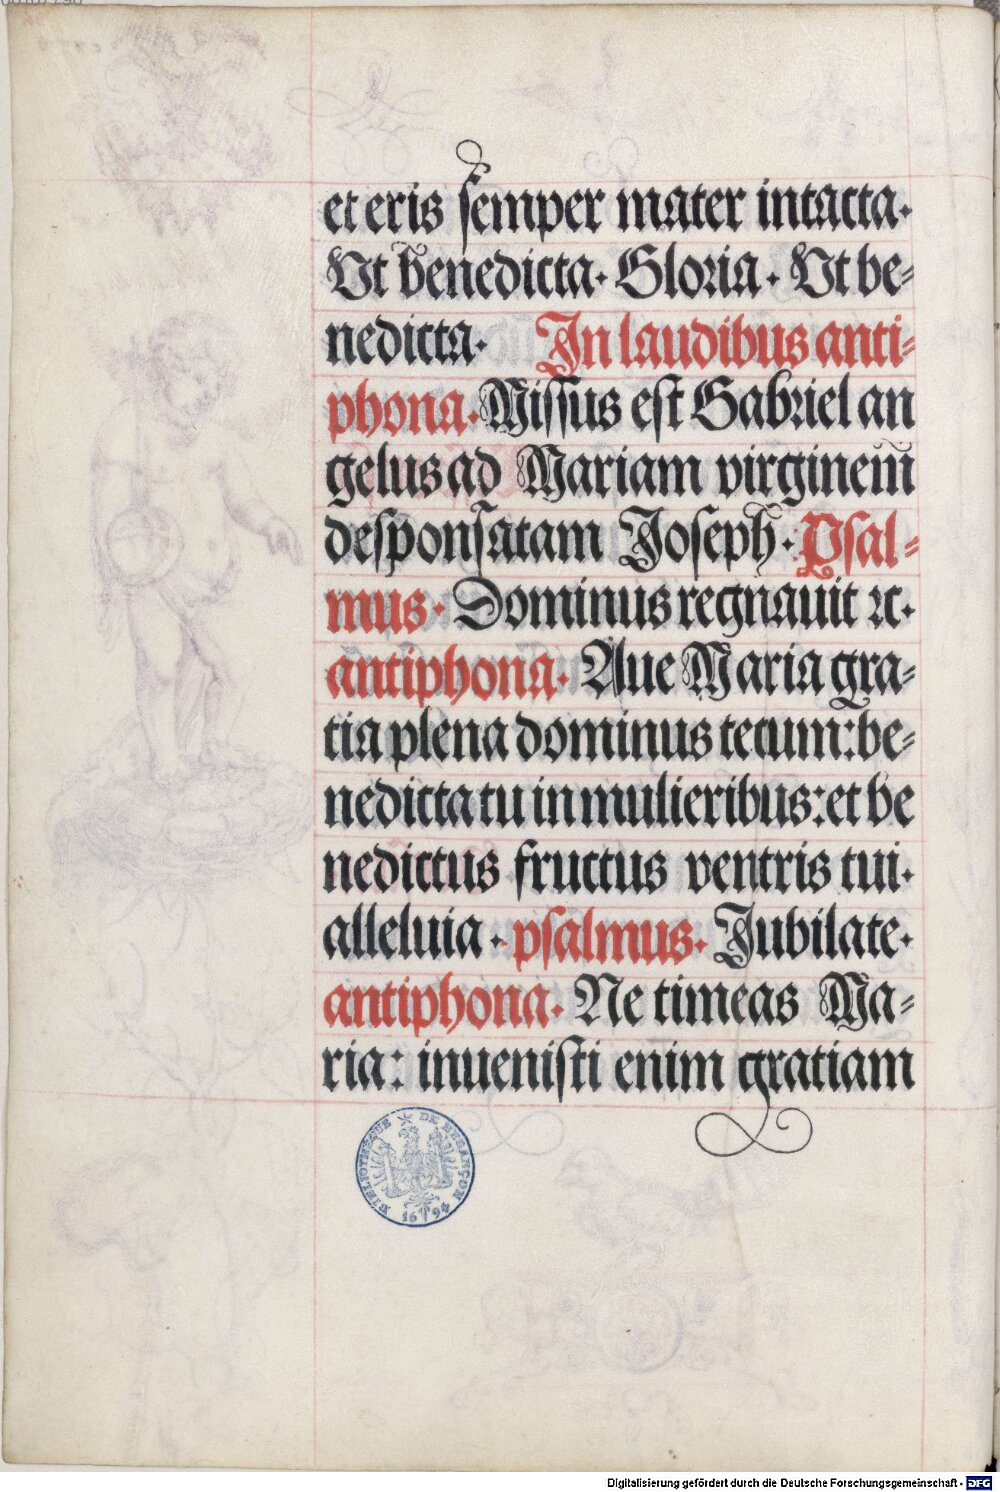 et eris semper mater intacta.
Ut benedicta. Gloria. Ut be-
nedicta. In laudibus anti-
phona. Missus est Gabriel an
gelus ad Mariam virginem
desponsatam Joseph. Psal-
mus. Dominus regnauit ꝛc.
antiphona. Aue Maria gra-
tia plena dominus tecum: be-
nedicta tu in mulieribus: et be
nedictus fructus ventris tui.
alleluia. psalmus. Jubilate.
antiphona. Ne timeas Ma-
ria: inuenisti enim gratiam
BIBLIOTHÈQUE DE BESANÇON
1694
Digitalisierung gefördert durch die Deutsche Forschungsgemeinschaft - DFG